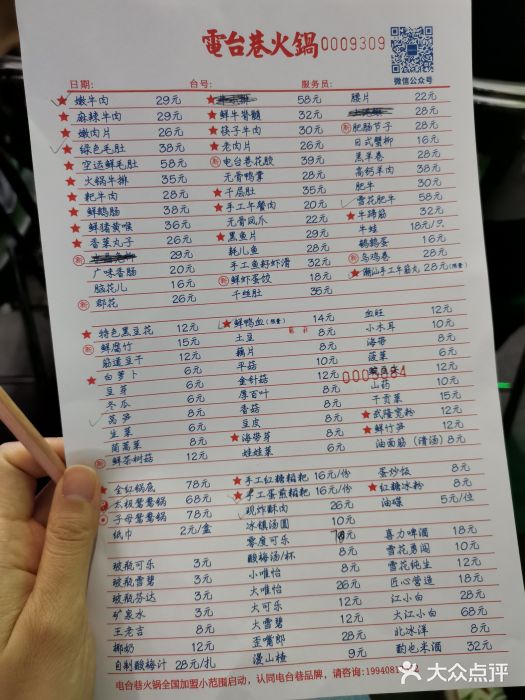 電台巷火鍋 0009309
微信公众号
日期: 台号: 服务员:
★ 嫩牛肉 29元 ★ 58元 腰片 22元
★ 麻辣牛肉 29元 ★ 鲜牛脊髓 32元 28元
★ 嫩肉片 26元 ★ 筷子牛肉 30元 新 肥肠节子 28元
★ 绿色毛肚 38元 ★ 老肉片 26元 日式蟹柳 16元
★ 空运鲜毛肚 58元 新 电台巷花胶 39元 黑羊卷 28元
★ 火锅牛排 35元 无骨鸭掌 28元 高钙羊肉 38元
★ 耙牛肉 28元 ★ 千层肚 35元 肥牛 30元
★ 鲜鹅肠 38元 ★ 手工年餐肉 20元 雪花肥牛 58元
★ 鲜猪黄喉 36元 无骨凤爪 22元 ★ 牛蹄筋 32元
★ 香菜丸子 26元 ★ 黑鱼片 29元 牛蛙 18元/只
新 29元 耗儿鱼 28元 鹌鹑蛋 16元
广味香肠 20元 手工鱼籽虾滑 32元 新 乌鸡卷 28元
脑花儿 16元 新 鲜虾蛋饺 18元 ★ 潮汕手工牛筋丸 28元(限量)
新 郡花 26元 千丝肚 35元
★ 特色黑豆花 12元 ★ 鲜鸭血(限量) 14元 血旺 12元
新 鲜腐竹 15元 土豆 8元 小木耳 10元
筋道豆干 12元 藕片 8元 海带 8元
★ 白萝卜 6元 平菇 10元 菠菜 6元
豆芽 6元 金针菇 12元 12元
0003884
冬瓜 6元 厚百叶 8元 山药 10元
莴笋 8元 香菇 8元 干贡菜 15元
生菜 6元 豆皮 8元 ★ 武隆宽粉 12元
茼蒿菜 8元 ★ 海带芽 8元 ★ 鲜竹笋 12元
新 鲜茶树菇 12元 娃娃菜 6元 油面筋(清汤) 8元
★ 全红锅底 78元 ★ 手工红糖糍粑 16元/份 蛋炒饭 8元
太极鸳鸯锅 68元 ★ 手工蛋煎糍粑 16元/份 ★ 红糖冰粉 8元
子母鸳鸯锅 78元 现炸酥肉 26元 油碟 5元/位
纸巾 2元/盒 冰镇汤圆 10元
零度可乐 喜力啤酒 18元
玻瓶可乐 3元 酸梅汤/杯 8元 雪花勇闯 10元
玻瓶雪碧 3元 小唯怡 8元 雪花纯生 12元
玻瓶芬达 3元 大唯怡 26元 匠心营造 18元
矿泉水 3元 大可乐 12元 江小白 28元
王老吉 8元 大雪碧 12元 大江小白 68元
椰奶 12元 歪嘴郎 28元 北冰洋 8元
自制酸梅汁 28元/扎 漫山楂 9元 酌也米酒 32元
电台巷火锅全国加盟小范围启动，认同电台巷品牌，请咨询:1994081
大众点评